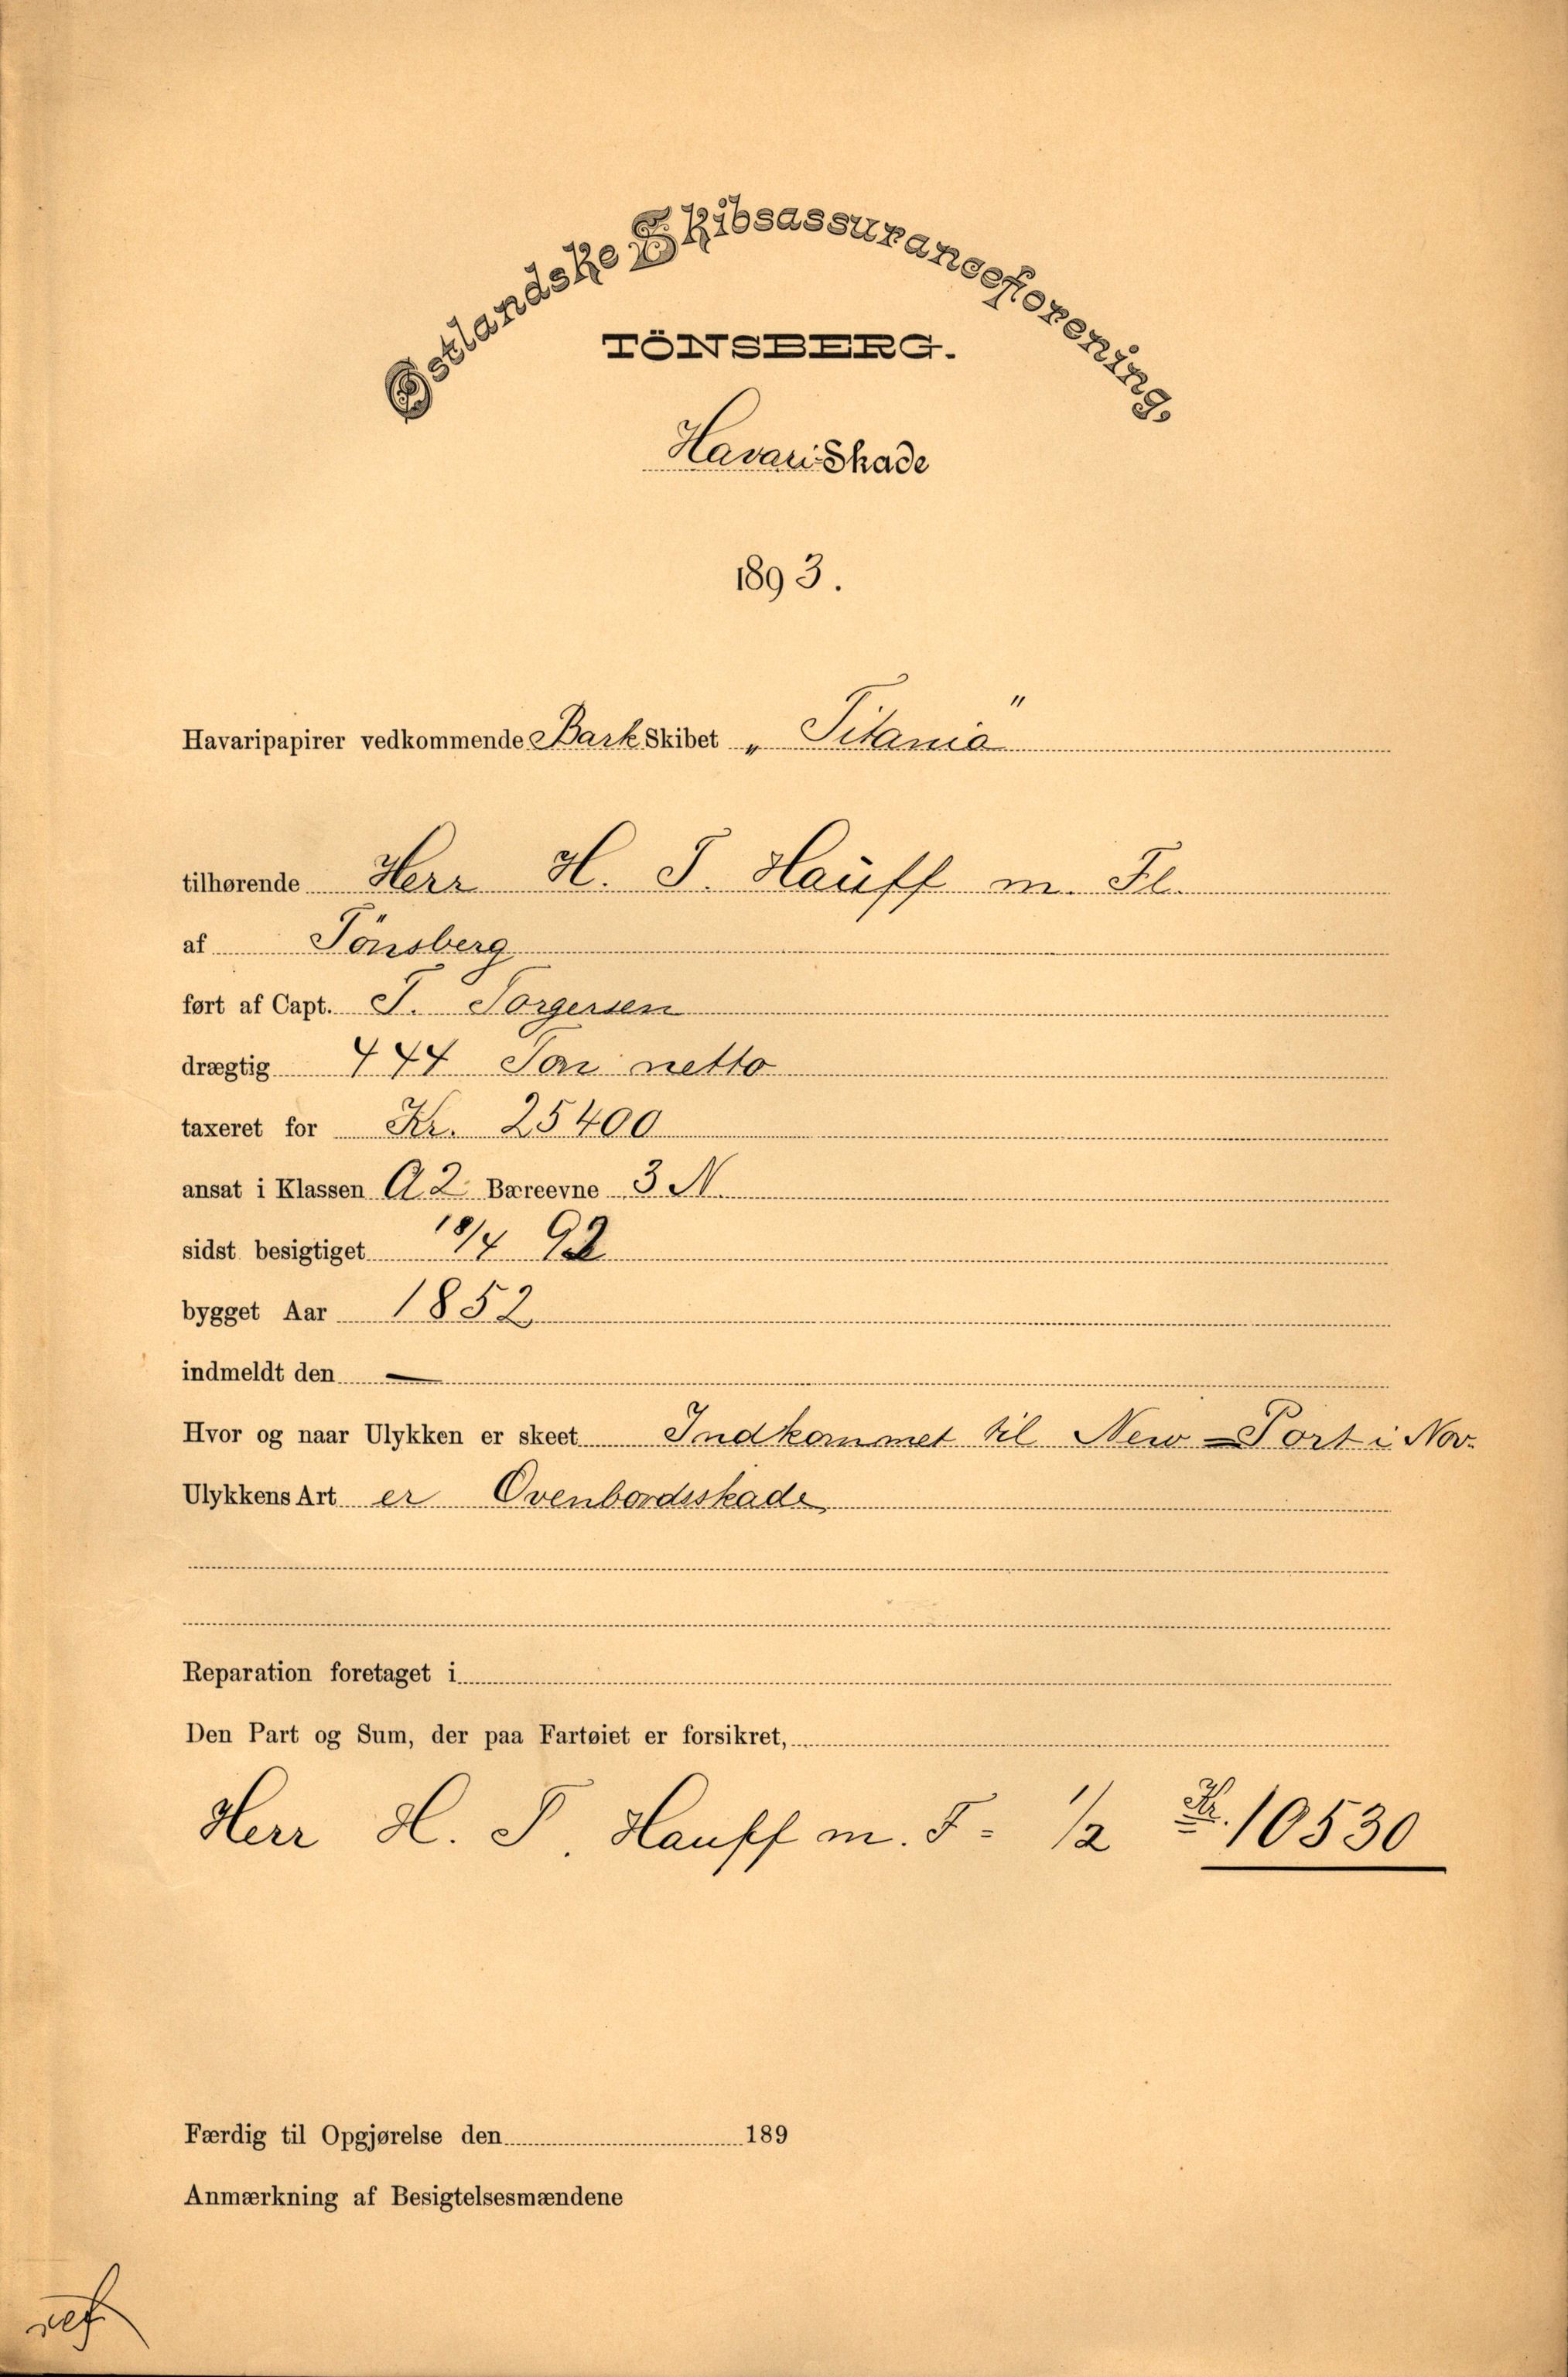 Østlandske Skibsassuranceforening,
TÖNSBERG.
Havari Skade
1893.
Havaripapirer vedkommende Bark Skibet „Titania"
tilhørende Herr H. T. Hauff m. Fl.
af Tönsberg
ført af Capt. T. Torgersen
drægtig 444 Ton netto
taxeret for Kr. 25400
ansat i Klassen A 2 Bæreevne 3 N.
sidst besigtiget 18/4 92
bygget Aar 1852
indmeldt den —
Hvor og naar Ulykken er skeet Indkommet til New=Port i Nov.
Ulykkens Art er Ovenbordsskade
Reparation foretaget i
Den Part og Sum, der paa Fartøiet er forsikret,
Herr H. T. Hauff m. F- 1/2 Kr. 10530
Færdig til Opgjørelse den 189
Anmærkning af Besigtelsesmændene